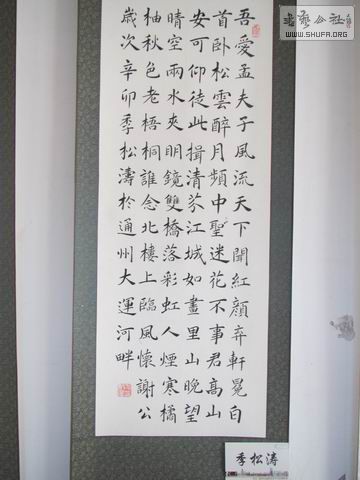 吾愛孟夫子風流天下聞紅顏弃軒冕白
首卧松雲醉月頻中聖迷花不事君高山
安可仰徒此揖清芬江城如畫里山晚望
晴空兩水夾明鏡雙橋落彩虹人煙寒橘
柚秋色老梧桐誰念北樓上臨風懷謝公
歲次辛卯季松濤於通州大運河畔
季松涛
WWW.SHUFA.ORG